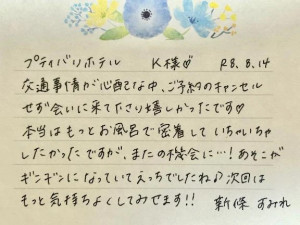 プティバリホテル K様♡ R8.8.14
交通事情が心配な中、ご予約のキャンセル
せず会いに来て下さり嬉しかったです♡
本当はもっとお風呂で密着していちゃいちゃ
したかったですが、またの機会に…!あそこが
ギンギンになっていてえっちでしたね♪次回は
もっと気持ちよくしてみせます!! 新條 すみれ